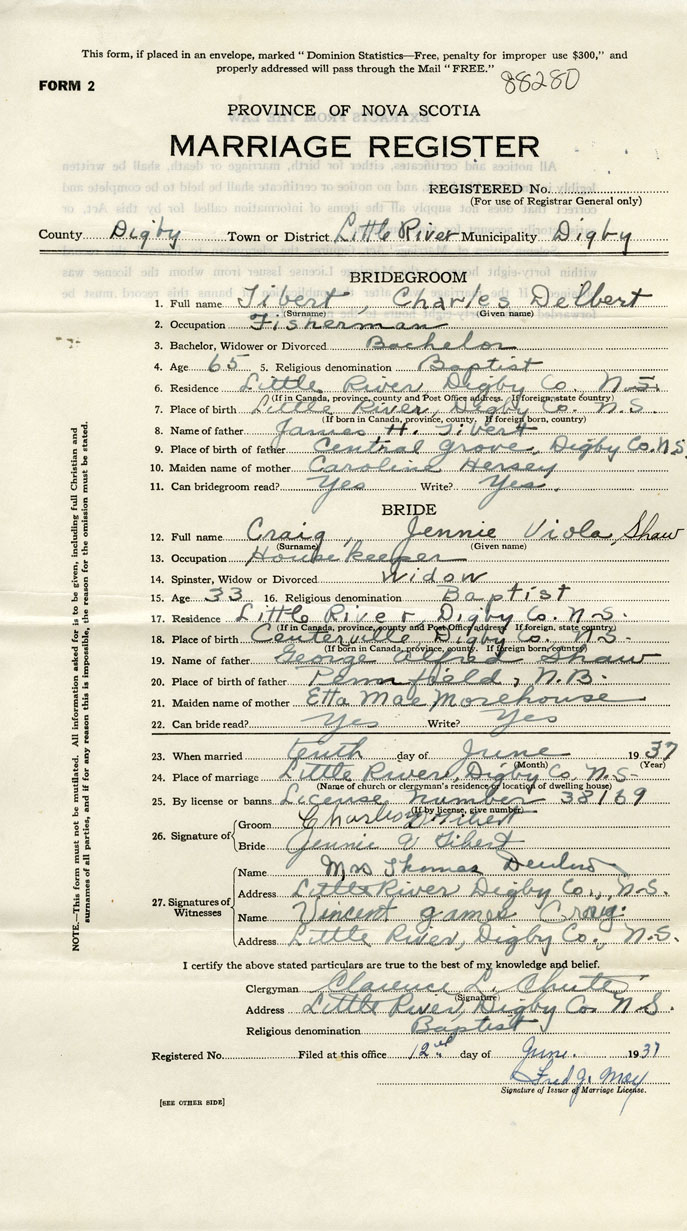 This form, if placed in an envelope, marked "Dominion Statistics—Free, penalty for improper use $300," and
properly addressed will pass through the Mail "FREE."
88280
FORM 2
PROVINCE OF NOVA SCOTIA
MARRIAGE REGISTER
REGISTERED No.
(For use of Registrar General only)
County Digby Town or District Little River Municipality Digby
BRIDEGROOM
1. Full name Tibert, Charles Delbert
(Surname) (Given name)
2. Occupation Fisherman
3. Bachelor, Widower or Divorced Bachelor
4. Age 65 5. Religious denomination Baptist
6. Residence Little River, Digby Co. N.S.
(If in Canada, province, county and Post Office address. If foreign, state country)
7. Place of birth Little River, Digby Co. N.S.
(If born in Canada, province, county. If foreign born, country)
8. Name of father James H. Tibert
9. Place of birth of father Central Grove, Digby Co. N.S.
10. Maiden name of mother Caroline Hersey
11. Can bridegroom read? Yes Write? Yes.
BRIDE
12. Full name Craig, Jennie Viola Shaw
(Surname) (Given name)
13. Occupation Housekeeper
14. Spinster, Widow or Divorced Widow
15. Age 33 16. Religious denomination Baptist
17. Residence Little River, Digby Co. N.S.
(If in Canada, province, county and Post Office address If foreign, state country)
18. Place of birth Centerville Digby Co. N.S.
(If born in Canada, province, county. If foreign born, country)
19. Name of father George Alfred Shaw
20. Place of birth of father Pennfield, N.B.
21. Maiden name of mother Etta Mae Morehouse
22. Can bride read? Yes Write? Yes
23. When married tenth day of June 1937
(Month) (Year)
24. Place of marriage Little River, Digby Co. N.S.
(Name of church or clergyman's residence or location of dwelling house)
25. By license or banns License number 38169
(If by license, give number)
26. Signature of
Groom Charles D Tibert
Bride Jennie V Tibert
27. Signatures of Witnesses
Name Mrs Thomas
Address Little River Digby Co., N.S.
Name Vincent James Craig
Address Little River, Digby Co., N.S.
I certify the above stated particulars are true to the best of my knowledge and belief.
Clergyman Clarence L. Chute
(Signature)
Address Little River, Digby Co. N.S.
Religious denomination Baptist
Registered No. Filed at this office 12 day of June. 1937
Fred J. May
Signature of Issuer of Marriage License.
[SEE OTHER SIDE]
NOTE.—This form must not be mutilated. All information asked for is to be given, including full Christian and
surnames of all parties, and if for any reason this is impossible, the reason for the omission must be stated.